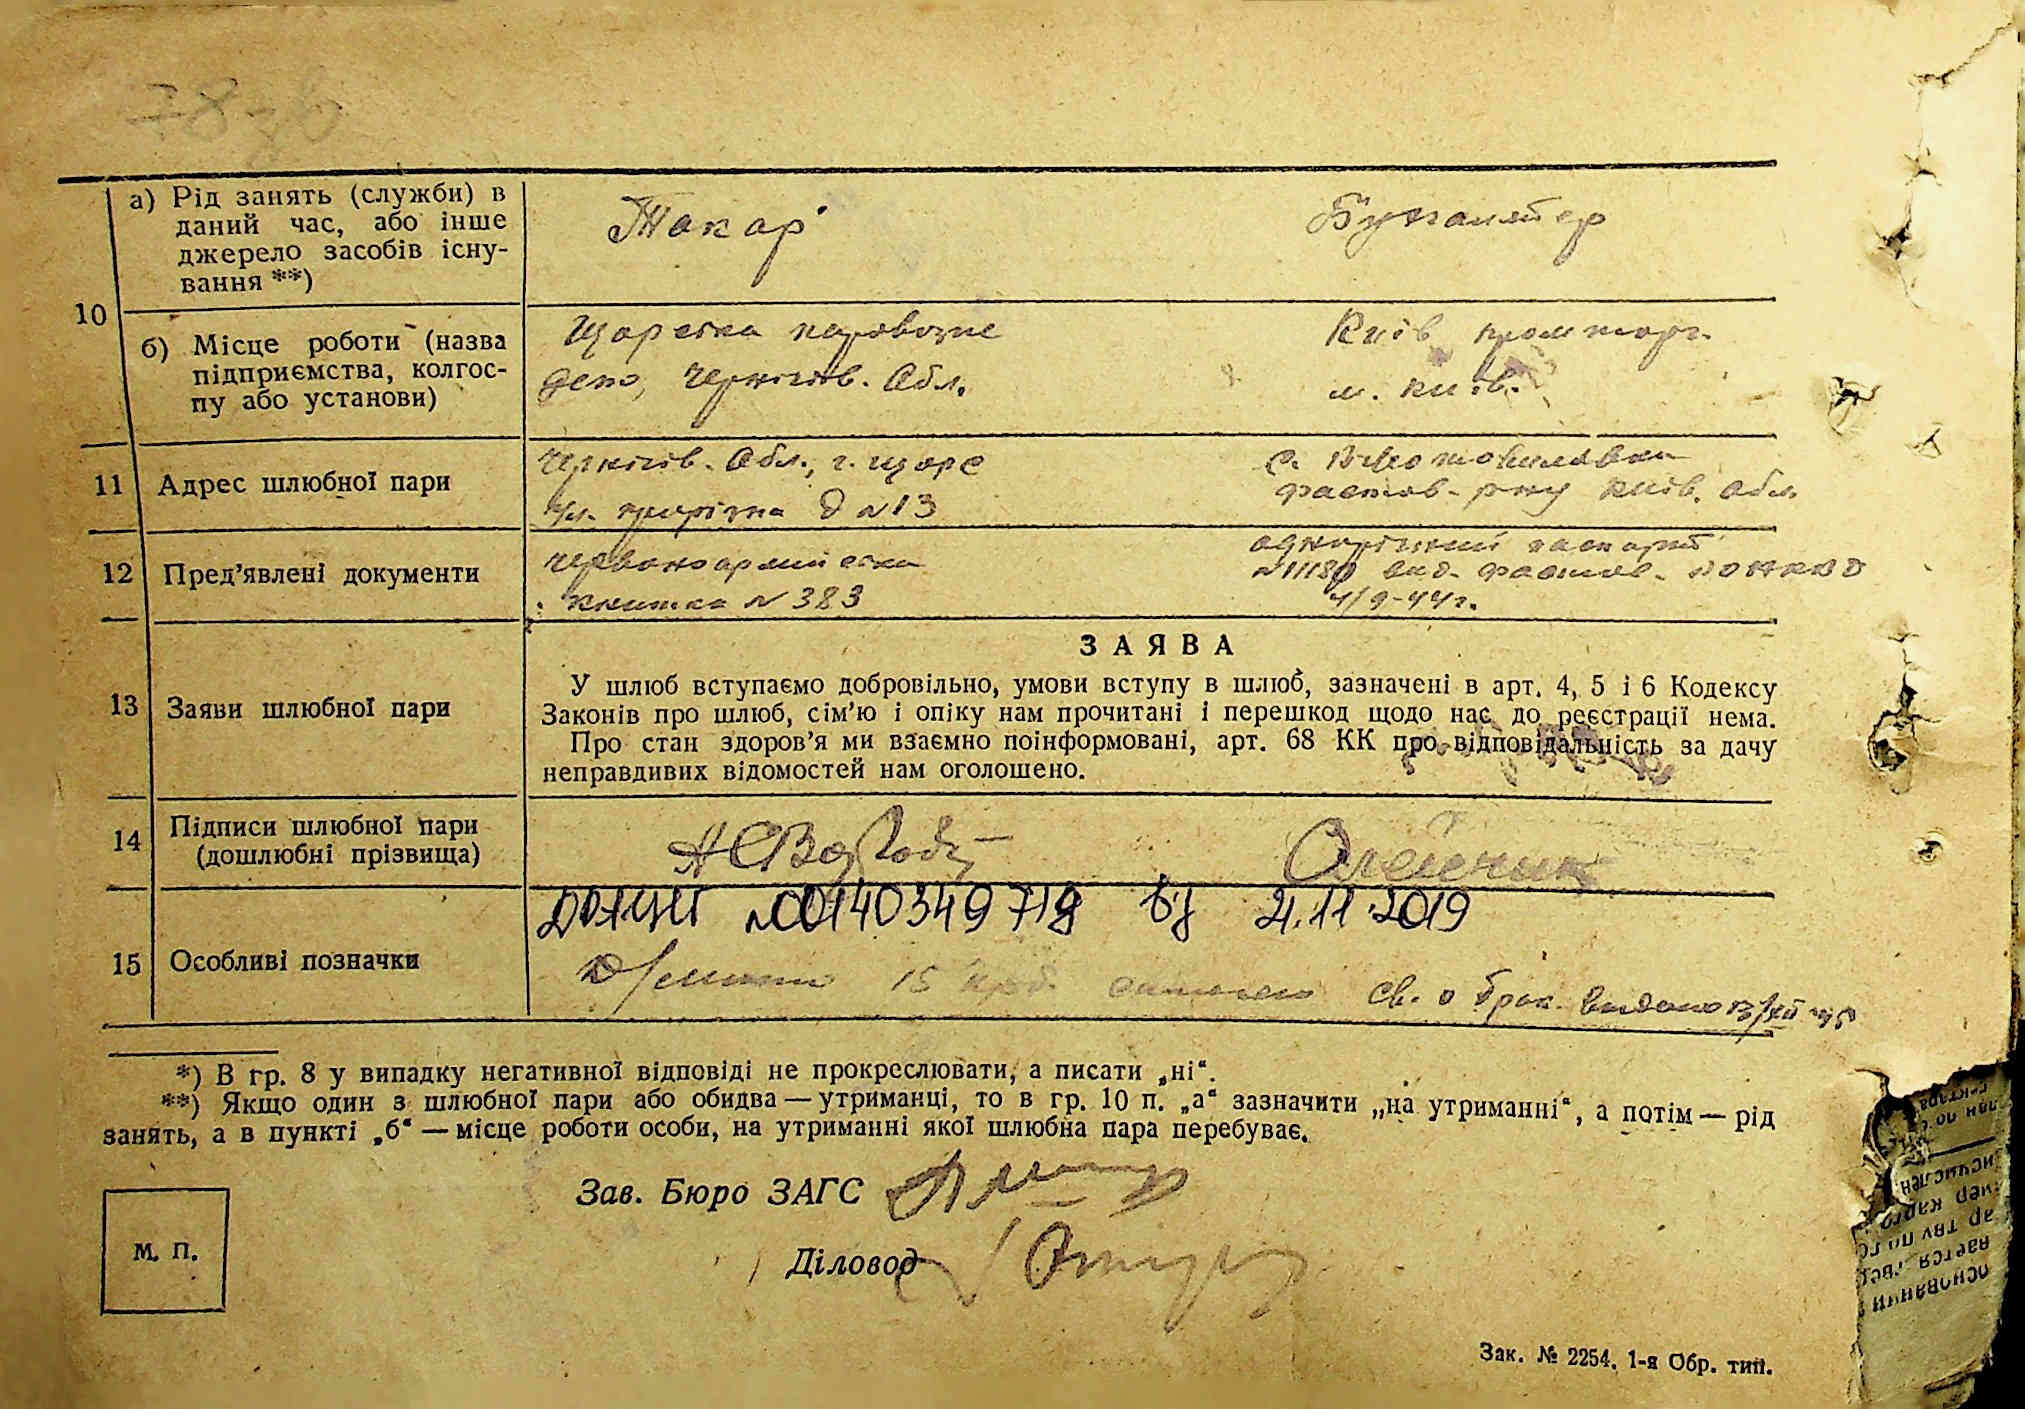 78-80
10
а) Рід занять (служби) в
даний час, або інше
джерело засобів існу-
вання **)
Токар
Бухгалтер
б) Місце роботи (назва
підприємства, колгос-
пу або установи)
Щорська паровозне
депо, Чернігів. Обл.
Київ промторг.
м. Київ.
11 Адрес шлюбної пари
Чернігів. Обл., г. Щорс
ул. прорізна д №13
с. Мотовиловка
фастов- р-ну Київ. Обл.
12 Пред'явлені документи
червоноармійська
книжка № 383
однорічний паспорт
вид. фастов. РО НКВД
4/9-44г.
13 Заяви шлюбної пари
ЗАЯВА
У шлюб вступаємо добровільно, умови вступу в шлюб, зазначені в арт. 4, 5 і 6 Кодексу
Законів про шлюб, сім'ю і опіку нам прочитані і перешкод щодо нас до реєстрації нема.
Про стан здоров'я ми взаємно поінформовані, арт. 68 КК про відповідальність за дачу
неправдивих відомостей нам оголошено.
14 Підписи шлюбної пари
(дошлюбні прізвища)
Олейник
15 Особливі позначки
№00140349719 від 21.11.2019
15 крб. Св. о брак. видано 13/XII 45
*) В гр. 8 у випадку негативної відповіді не прокреслювати, а писати „ні“.
**) Якщо один з шлюбної пари або обидва — утриманці, то в гр. 10 п. „а“ зазначити „на утриманні“, а потім — рід
занять, а в пункті „б“ — місце роботи особи, на утриманні якої шлюбна пара перебуває.
Зав. Бюро ЗАГС
Діловод
М. П.
Зак. № 2254. 1-я Обр. тип.